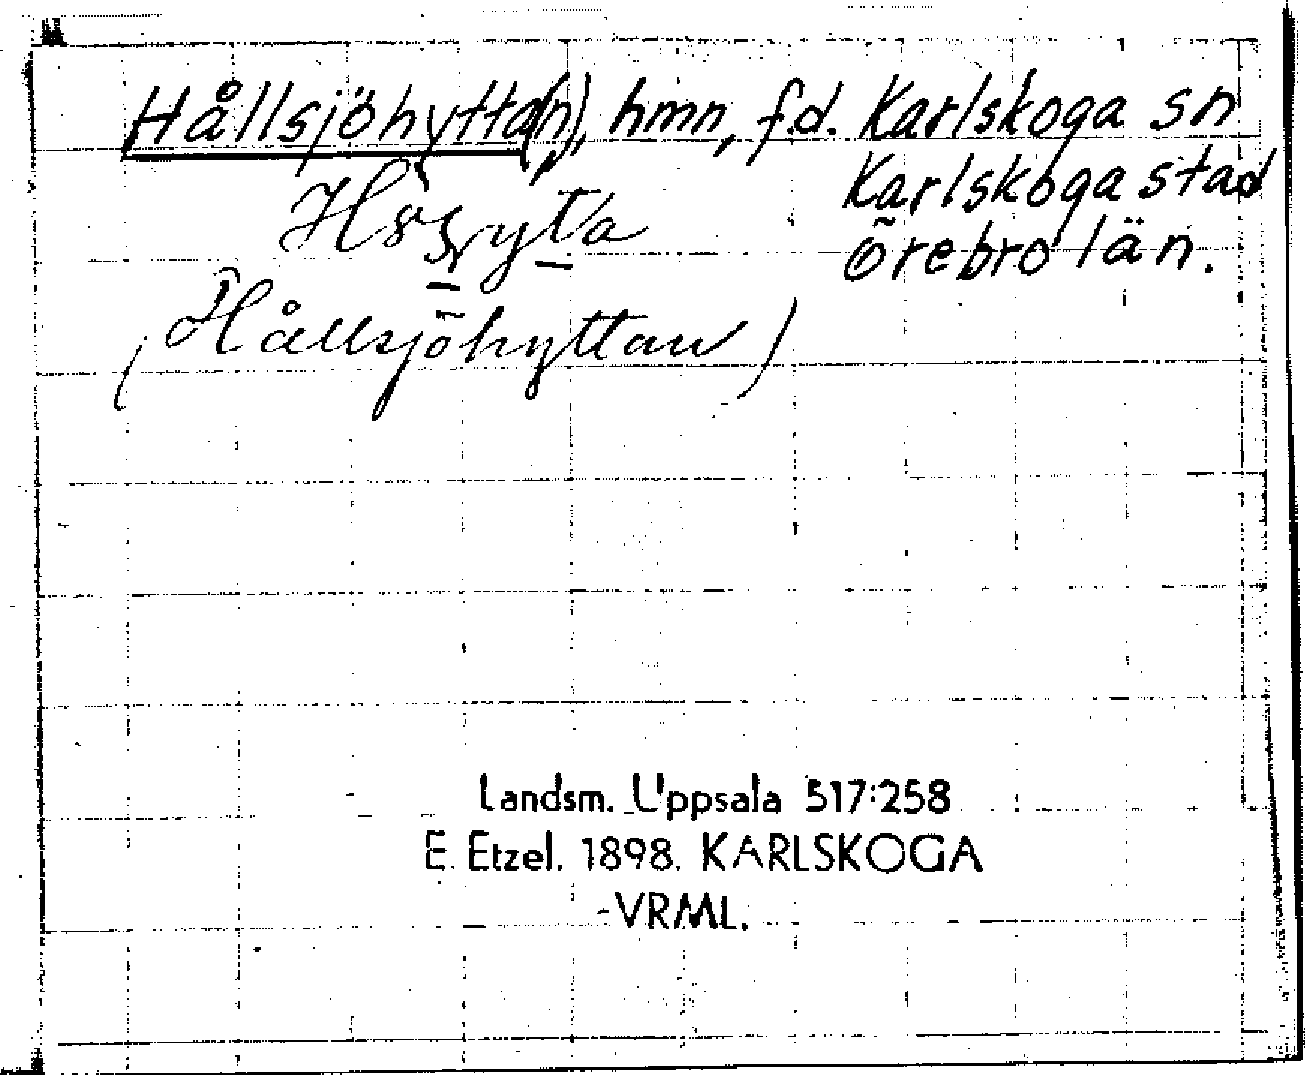 Hållsjöhytta(n), hmn, f.d. Karlskoga sn
Karlskoga stad
Örebro län.
(Hållsjöhyttan)
Landsm. Uppsala 517:258
E. Etzel. 1898. KARLSKOGA
VRML.